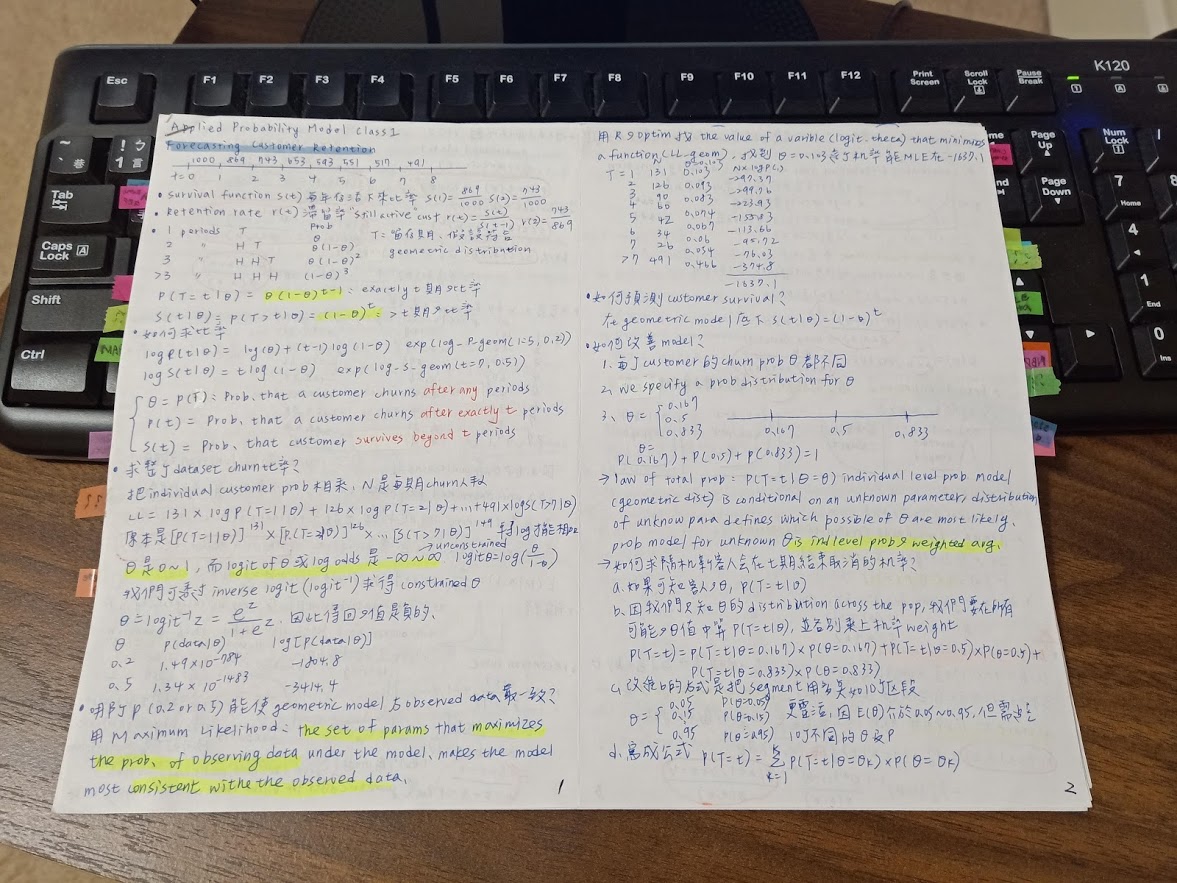 Esc
F1 F2 F3 F4 F5 F6 F7 F8 F9 F10 F11 F12
Print Screen
Scroll Lock
Pause Break
K120
Tab
Caps Lock A
Shift
Ctrl
Page Up
Page Down
Num Lock
7 Home
8
4
1 End
0 Ins
Applied Probability Model Class 1
Forecasting Customer Retention
1000 869 743 653 593 551 517 491
t=0 1 2 3 4 5 6 7 8
• Survival function S(t) 每年存活下來比率 S(1)=869/1000 S(2)=743/1000
• Retention rate r(t) 滯留率 "still active" cust r(t)=S(t)/S(t-1) r(2)=743/869
• 1 periods T Prob θ T=留存期, 假設符合
2 〃 H T θ(1-θ) geometric distribution
3 〃 H H T θ(1-θ)²
>3 〃 H H H (1-θ)³
P(T=t|θ) = θ(1-θ)^t-1 : exactly t期的比率
S(t|θ) = P(T>t|θ) = (1-θ)^t : >t期的比率
• 如何求比率
log P(t|θ) = log(θ)+(t-1)log(1-θ) exp(log-P-geom(1-5,0.2))
log S(t|θ) = t log(1-θ) exp(log-S-geom(t=7,0.5))
θ = P(T): Prob. that a customer churns after any periods
P(t) = Prob. that a customer churns after exactly t periods
S(t) = Prob. that customer survives beyond t periods
• 求整个dataset churn比率?
把individual customer prob相乘, N是每期churn人数
LL = 131×log P(T=1|θ) + 126×log P(T=2|θ)+...+491×log S(T>7|θ)
原本是[P(T=1|θ)]^131 × [P(T=2|θ)]^126 × ... [S(T>7|θ)]^149 取log才能相加
θ是0~1, 而logit of θ 或 log odds 是 -∞~∞ unconstrained logitθ=log(θ/1-θ)
我們可透过 inverse logit (logit⁻¹) 求得 constrained θ
θ=logit⁻¹z = e^z/1+e^z. 因此得回的值是真的.
θ P(data|θ) log[P(data|θ)]
0.2 1.49×10⁻⁷⁸⁴ -1804.8
0.5 1.34×10⁻¹⁴⁸³ -3414.4
• 哪个 p (0.2 or 0.5) 能使 geometric model 与 observed data 最一致?
用 Maximum Likelihood: the set of params that maximizes
the prob. of observing data under the model, makes the model
most consistent withe the observed data.
1
用R的optim找 the value of a varible (logit.theta) that minimizes
a function (LL-geom), 找到 θ=0.103这个机率能MLE在-1637.1
θ=0.103 N×logP(.)
T=1 131 0.103 -297.37
2 126 0.093 -299.26
3 90 0.083 -223.93
4 60 -155.83
5 42 0.067 -113.66
6 34 0.06 -95.72
7 26 0.054 -76.03
>7 491 0.466 -374.8
-1637.1
• 如何預測customer survival?
在geometric model 底下 S(t|θ)=(1-θ)^t
• 如何改善model?
1. 每个customer的churn prob θ 都不同
2. we specify a prob distribution for θ
3. θ = { 0.167 0.5 0.833
0.167 0.5 0.833
θ=
P(0.167)+P(0.5)+P(0.833)=1
→ law of total prob: P(T=t|θ=θ) individual level prob model
(geometric dist) is conditional on an unknown parameter, distribution
of unknow para defines which possible of θ are most likely.
prob model for unknown θ is ind level prob的weighted avg.
→ 如何求隨机新客人会在t期結束取消的机率?
a. 如果可知客人的θ, P(T=t|θ)
b. 因我們只知θ的distribution across the pop, 我們要在所有
可能的θ值中算 P(T=t|θ), 並各別乘上机率weight
P(T=t)=P(T=t|θ=0.167)×P(θ=0.167)+P(T=t|θ=0.5)×P(θ=0.5)+
P(T=t|θ=0.833)×P(θ=0.833)
c. 改進b的方式是把segment用多, 如10个区段
θ = { 0.05 P(θ=0.05) 0.15 P(θ=0.15) 0.95 P(θ=0.95) 更靈活, 因E(θ)介於0.05~0.95, 但需
10个不同的θ及P
d. 寫成公式 P(T=t)=Σ k=1 P(T=t|θ=θk)×P(θ=θk)
2